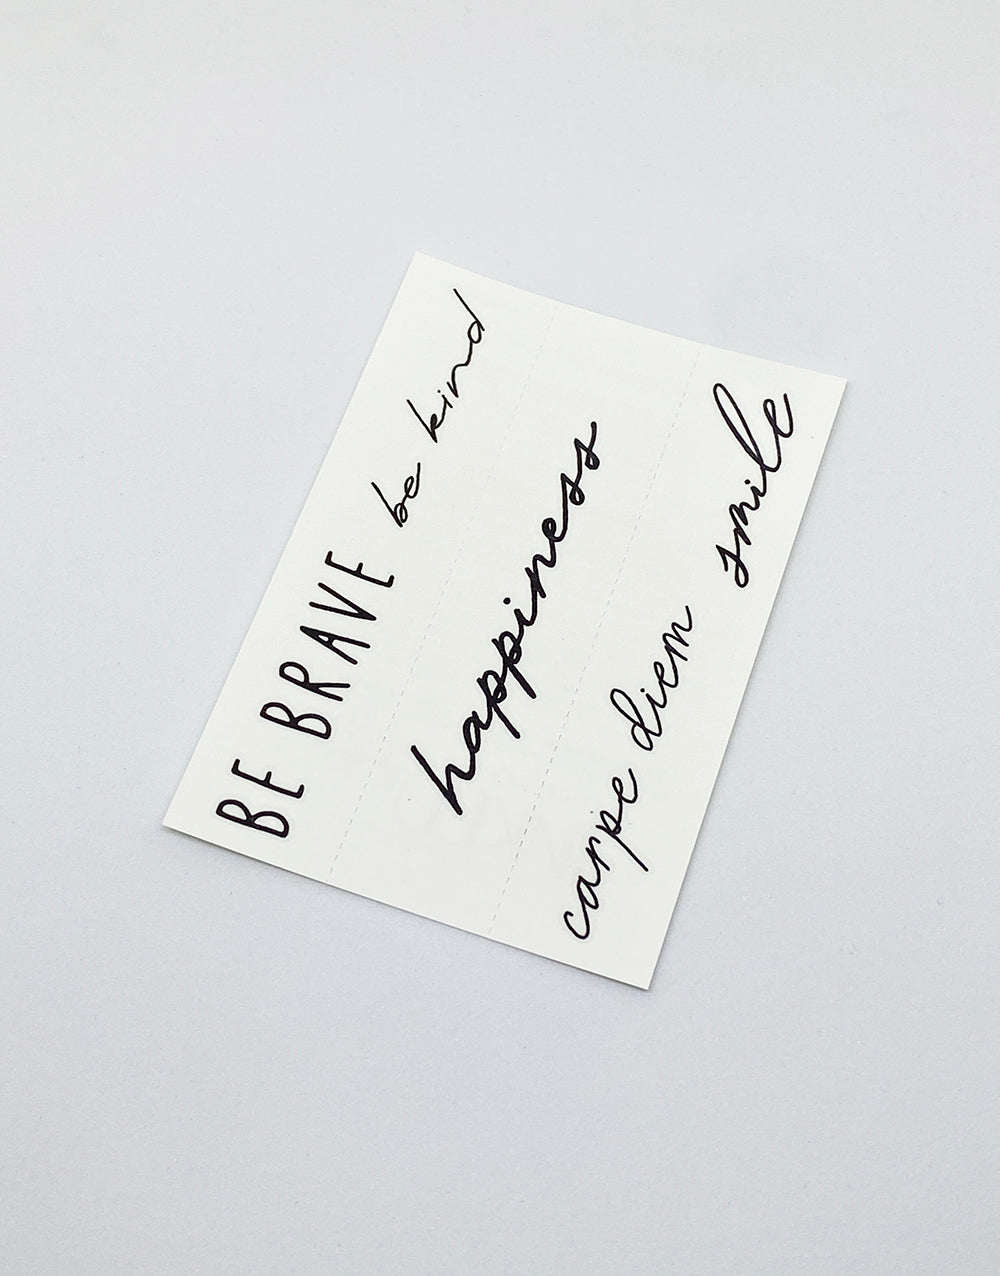 BE BRAVE be kind
happiness
carpe diem smile